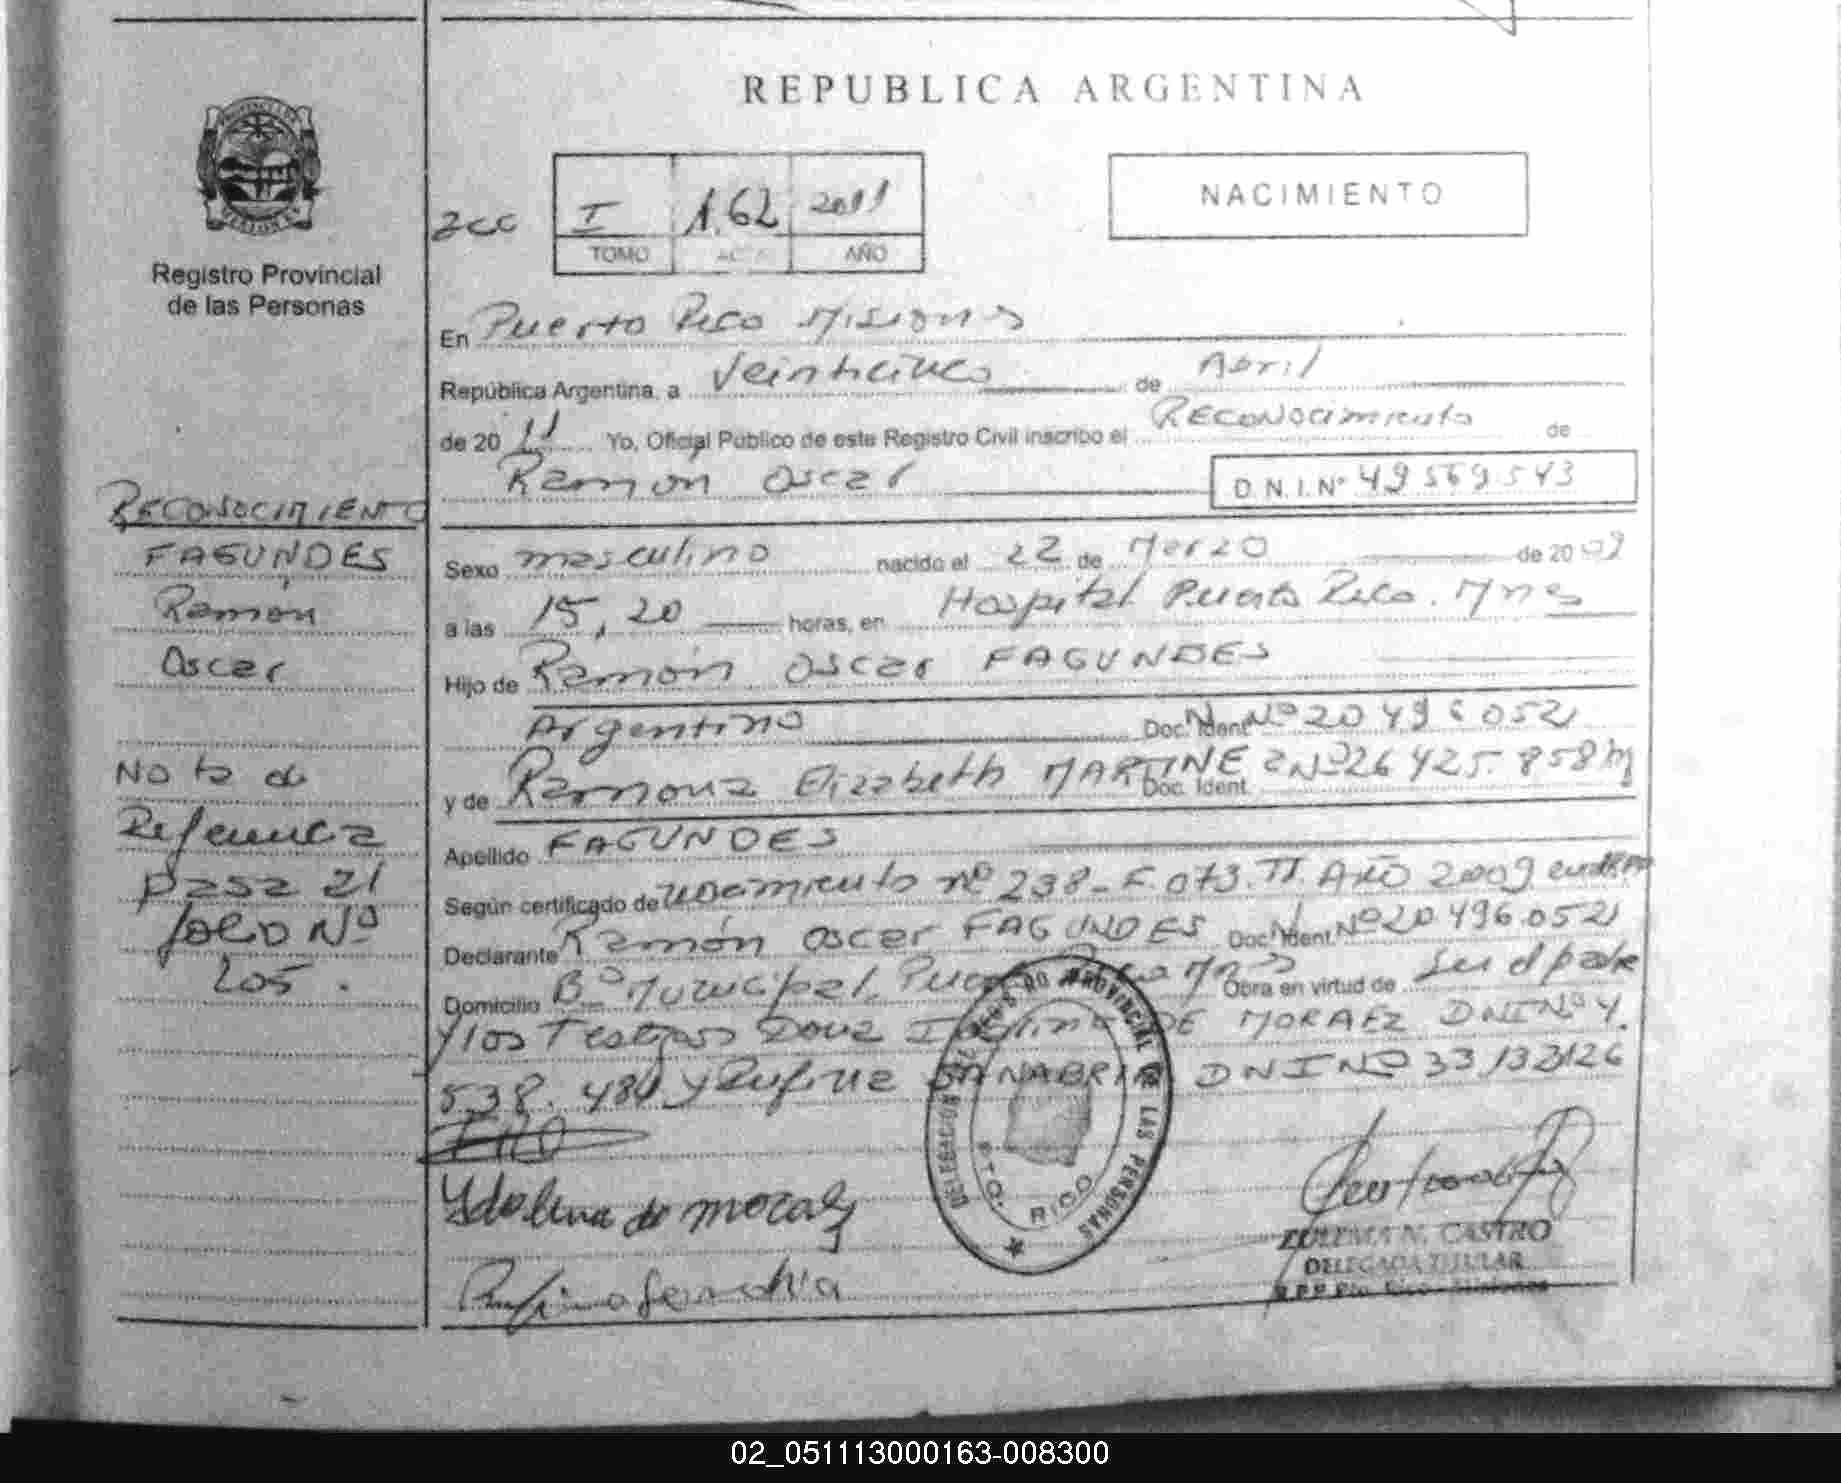 REPUBLICA ARGENTINA
NACIMIENTO
I 162 2011
TOMO ACTA AÑO
Registro Provincial
de las Personas
En Puerto Rico Misiones
República Argentina, a Veinticinco de Abril
de 2011 Yo, Oficial Público de este Registro Civil inscribo el Reconocimiento de
Ramon Oscar D.N.I.Nº 49569543
RECONOCIMIENTO
FAGUNDES
Ramón
Oscar
Nota de
Referencia
pasa al
folio Nº
205.
Sexo masculino nacido el 22 de Marzo de 2009
a las 15,20 horas, en Hospital Puerto Rico. Mnes
Hijo de Ramón Oscar FAGUNDES
Argentino Doc. Ident. Nº 20496052
y de Ramona Elizabeth MARTINEZ Doc. Ident. Nº 26425.858
Apellido FAGUNDES
Según certificado de nº 238-F.073.TI. AÑO 2009
Declarante Ramón Oscar FAGUNDES Doc. Ident. Nº 20496.052
Domicilio Bº Municipal. Puerto Rico Mnes Obra en virtud de ser el padre
y los Testigos DE MORAEZ DNI Nº 4.
538.480 y Rufina SANABRIA DNI Nº 33132126
Ydolina de moraez
Rufina Sanabria
DELEGACION REGISTRO PROVINCIAL DE LAS PERSONAS
PTO. RICO
ZULEMA N. CASTRO
DELEGADA TITULAR
R.P.P. Pto. Rico - Misiones
02_051113000163-008300